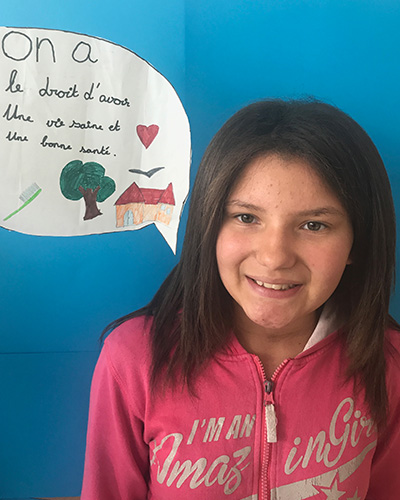 On a
le droit d'avoir
Une vie saine et
Une bonne santé.
I'M AN
Amaz in Gir